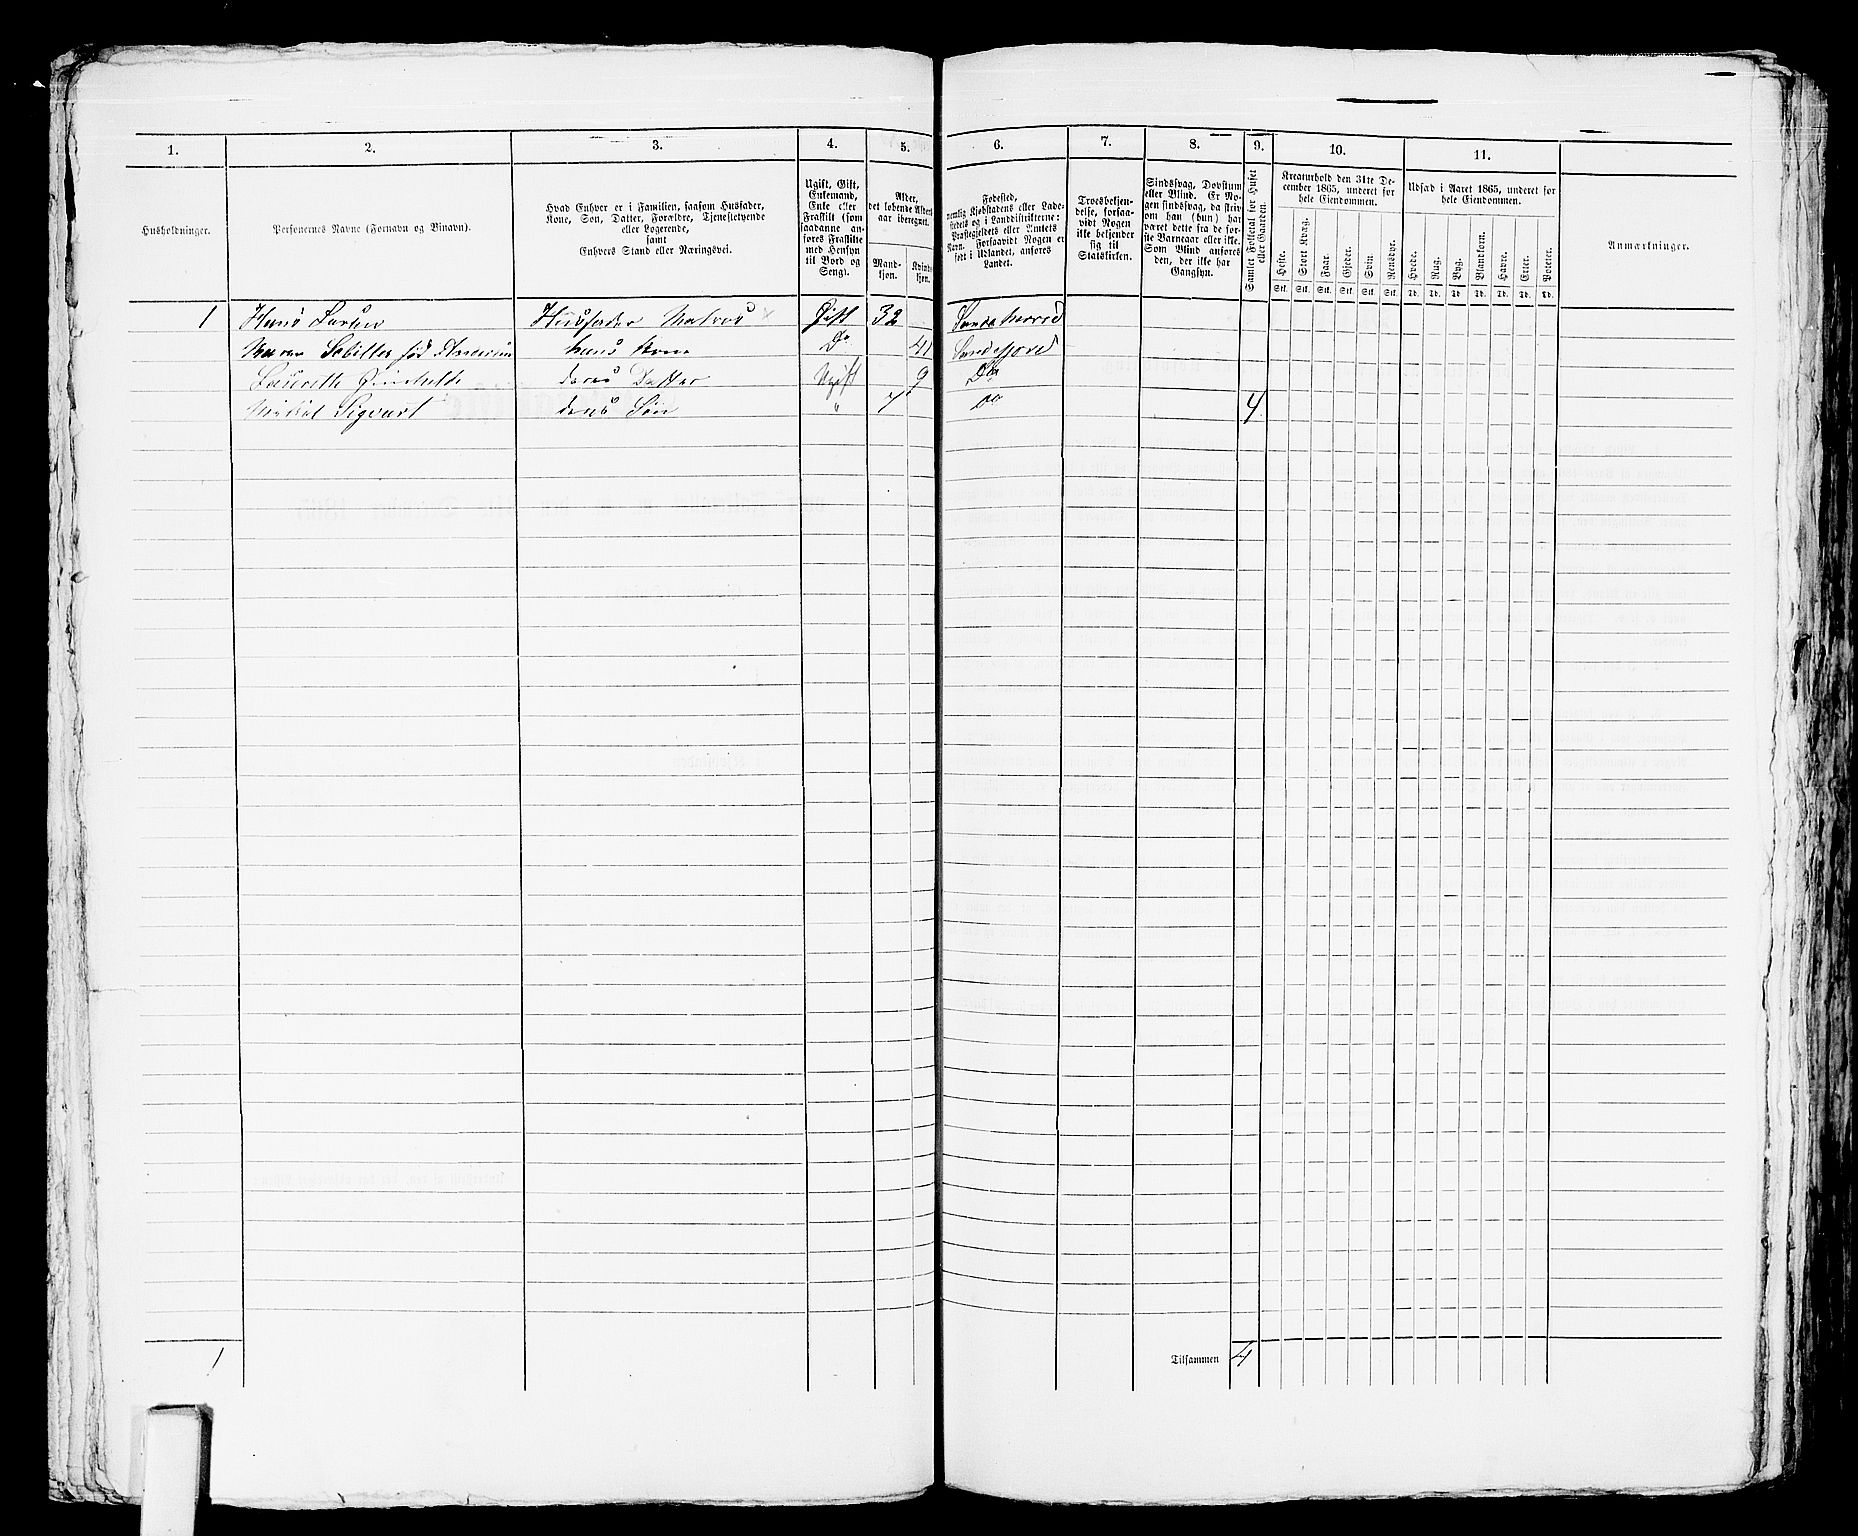 1. 2. 3. 4. 5. 6. 7. 8. 9. 10. 11.
Husholdninger.
Personernes Navne (Fornavn og Binavn).
Hvad Enhver er i Familien, saasom Husfader,
Kone, Søn, Datter, Forældre, Tjenestetyende
eller Logerende,
samt
Enhvers Stand eller Næringsvei.
Ugift, Gift,
Enkemand,
Enke eller
Fraskilt (som
saadanne an-
føres Fraskilte
med Hensyn
til Bord og
Seng).
Alder,
det løbende Alders-
aar iberegnet.
Mand-
kjøn.
Kvinde-
kjøn.
Fødested,
nemlig Kjøbstadens eller Lade-
stedets og i Landdistrikterne:
Præstegjeldets eller Amtets
Navn. Forsaavidt Nogen er
født i Udlandet, anføres
Landet.
Troesbekjen-
delse, forsaa-
vidt Nogen
ikke bekjender
sig til
Statskirken.
Sindssvag, Døvstum
eller Blind. Er No-
gen sindssvag, da skriv
om han (hun) har
været dette fra de før-
ste Barneaar eller ikke.
Som Blind anføres
den, der ikke har
Gangsyn.
Samlet Folketal for Huset
eller Gaarden.
Kreaturhold den 31te De-
cember 1865, underet for
hele Eiendommen.
Heste. Stort Kvæg. Faar. Gjeder. Svin. Rensdyr.
Stk. Stk. Stk. Stk. Stk. Stk.
Udsæd i Aaret 1865, underet for
hele Eiendommen.
Hvede. Rug. Byg. Blandkorn. Havre. Erter. Poteter.
Td. Td. Td. Td. Td. Td. Td.
Anmærkninger.
1 Hans Larsen Husfader Matros Gift 32
Maren født Andersen hans Kone Do 41 Sandefjord
deres Datter Ugift 9 Do
Sigvart deres Søn " 7 Do 4
1 Tilsammen 4